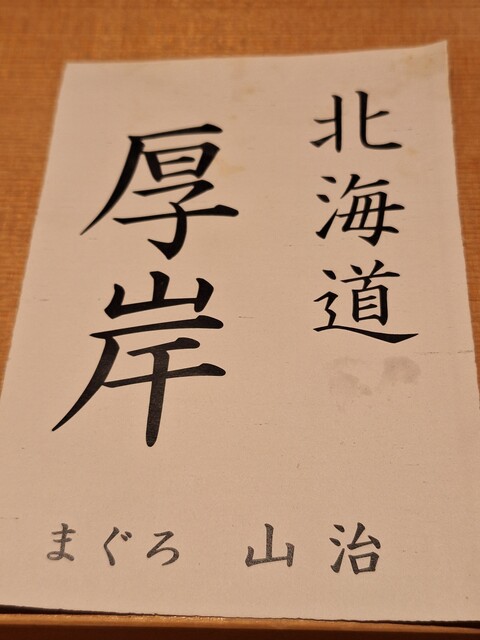 北海道
厚岸
まぐろ 山治